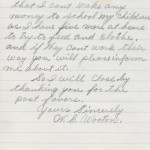 that I cant make any
money to school my children
as I have five more at home
to try to feed and clothe,
and if they cant work their
way you will please inform
me about it.
So I will close by
thanking you for the
past favors.
Yours Sincerely
W.B. Wooten.